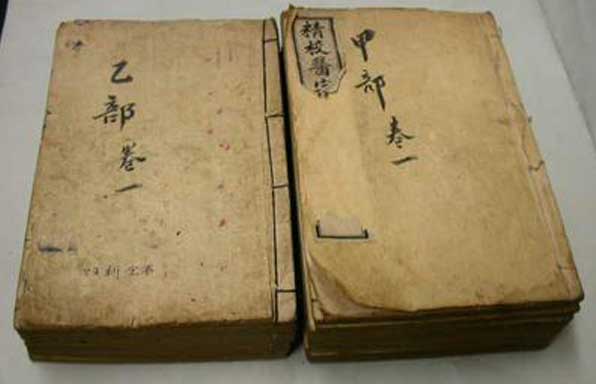 甲部
卷一
精校醫宗
乙部
卷一